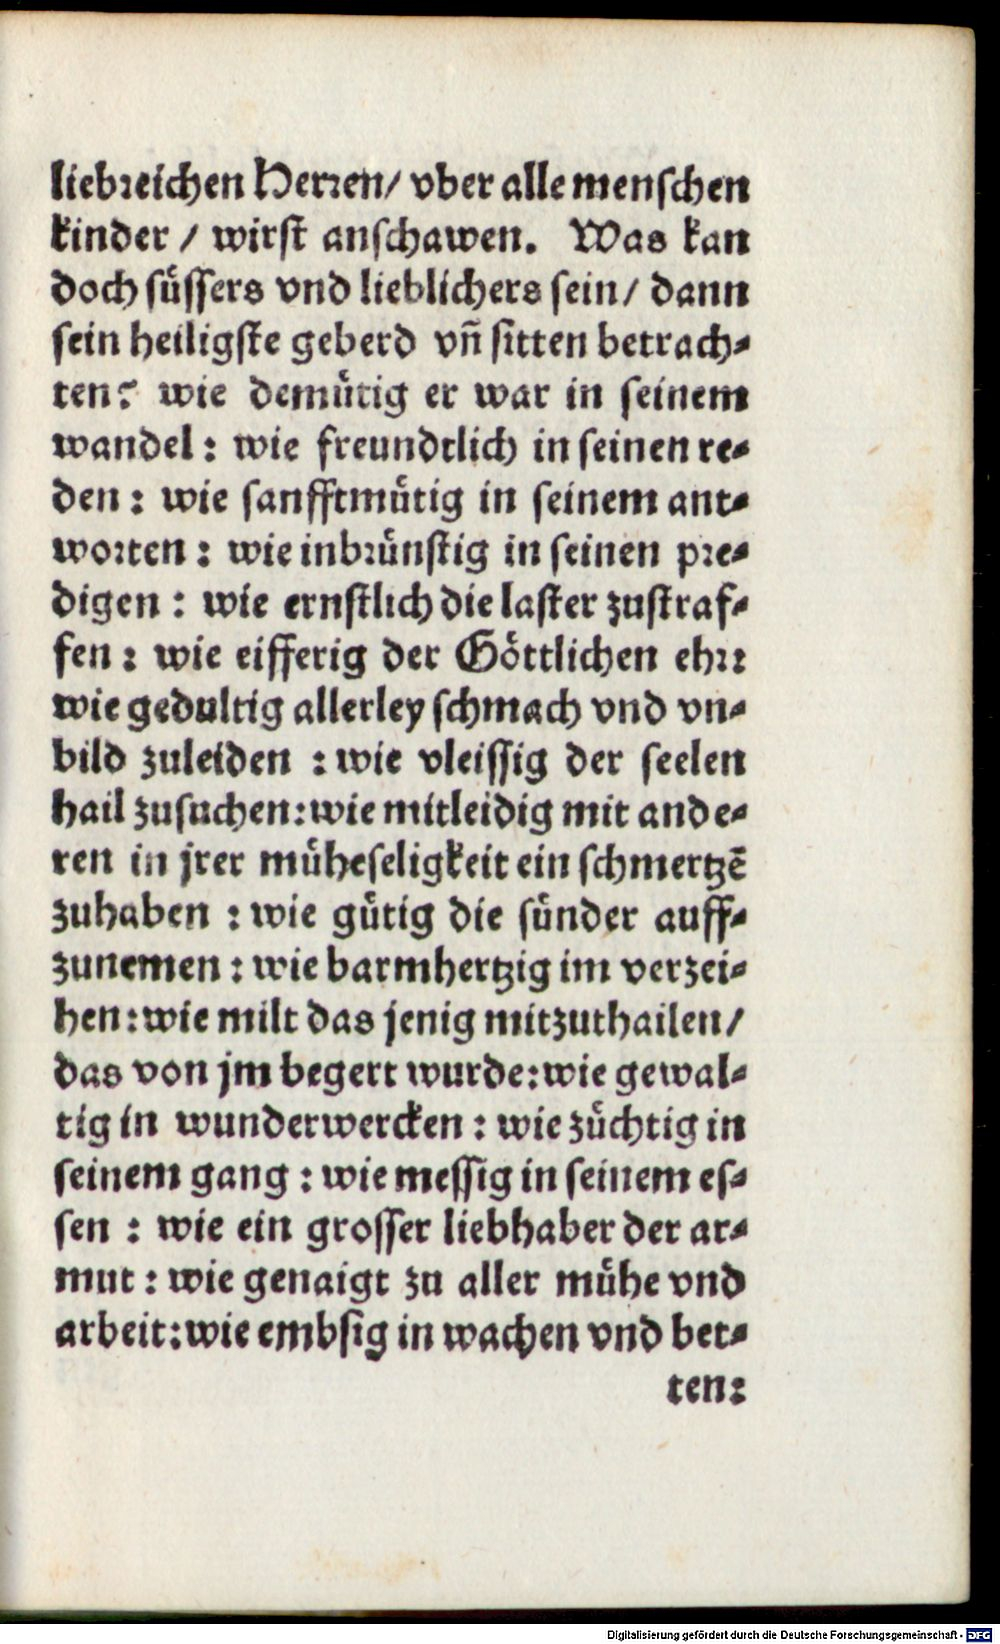 liebreichen Herren/ vber alle menschen
kinder / wirst anschawen. Was kan
doch süssers vnd lieblichers sein/ dann
sein heiligste geberd vñ sitten betrach-
ten? wie demütig er war in seinem
wandel: wie freundtlich in seinen re-
den: wie sanfftmütig in seinem ant-
worten: wie inbrünstig in seinen pre-
digen: wie ernstlich die laster zustraf-
fen: wie eifferig der Göttlichen ehr:
wie gedultig allerley schmach vnd vn-
bild zuleiden : wie vleissig der seelen
hail zusuchen: wie mitleidig mit ande-
ren in jrer müheseligkeit ein schmertzē
zuhaben : wie gütig die sünder auff-
zunemen: wie barmhertzig im verzei-
hen: wie milt das jenig mitzuthailen/
das von jm begert wurde: wie gewal-
tig in wunderwercken: wie züchtig in
seinem gang: wie messig in seinem es-
sen : wie ein grosser liebhaber der ar-
mut: wie genaigt zu aller mühe vnd
arbeit: wie embsig in wachen vnd bet-
ten:
Digitalisierung gefördert durch die Deutsche Forschungsgemeinschaft - DFG